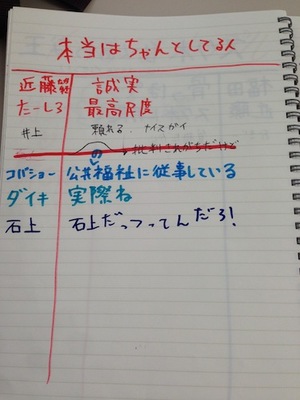 本当はちゃんとしてる人
近藤 誠実
たーしろ 最高尺度
井上 頼れる、ナイスガイ
の 批判されがちだけど
コバショー 公共福祉に従事している
ダイキ 実際ね
石上 石上だっつってんだろ!